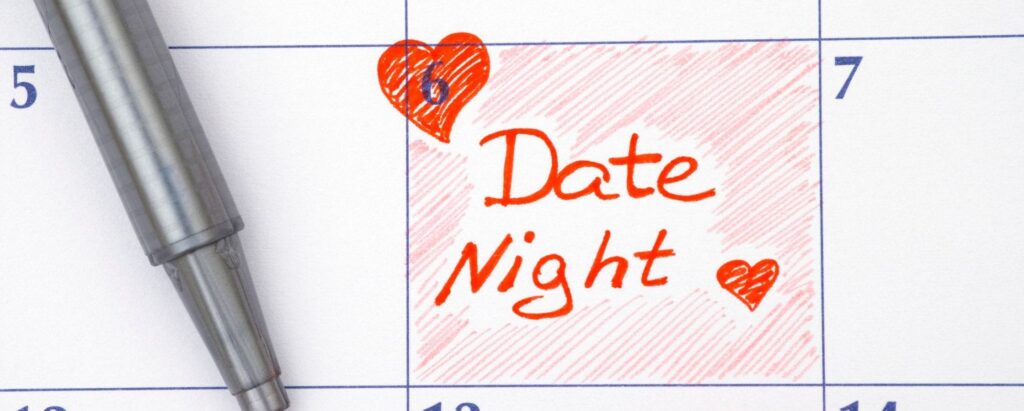 5 6 7
Date
Night